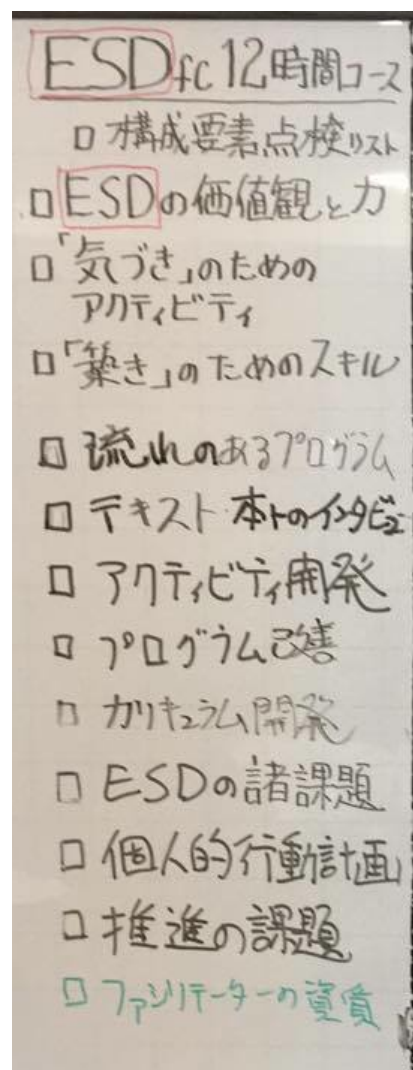 ESDfc 12時間コース
□ 構成要素点検リスト
□ ESDの価値観と力
□「気づき」のための
アクティビティ
□「築き」のためのスキル
□ 流れのあるプログラム
□ テキスト 本トのインタビュー
□ アクティビティ開発
□ プログラム改善
□ カリキュラム開発
□ ESDの諸課題
□ 個人的行動計画
□ 推進の課題
□ ファシリテーターの資質